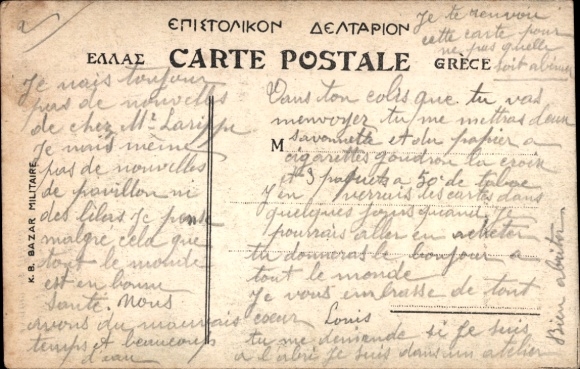 ΕΠΙΣΤΟΛΙΚΟΝ ΔΕΛΤΑΡΙΟΝ
ΕΛΛΑΣ CARTE POSTALE GRÈCE
K. B. BAZAR MILITAIRE
M
Je te renvoie
cette carte pour
ne pas quelle
soit abimer
Je nais toujour
pas de nouvelles
de chez Mr Larippe
Je nais même
pas de nouvelles
de pavillon ni
des lilas Je pense
malgre cela que
tout le monde
est en bonne
santé. Nous
avons du mauvais
temps et beaucoup
d'eau
Dans ton colis que tu vas
menvoyer tu me mettras deux
savonnette et du papier a
cigarettes goudron la croix
et 3 paquets a 50c de tabac
J'en verrais les cartes dans
quelques jours quand je
pourrais aller en acheter
tu donneras le bonjour a
tout le monde
Je vous embrasse de tout
coeur Louis
tu me demande si je suis
a l'abri Je suis dans un atelier
Bien abriter